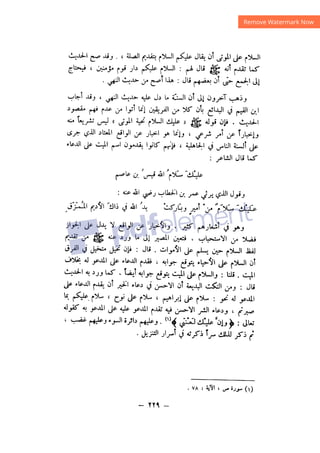 Remove Watermark Now
على الموتى أن يقال عليكم السلام بتقديم الصلة ، وقد صح الحديث
كما تقدم أنه ﷺ قال لهم : السلام عليكم دار قوم مؤمنين ، فيحتاج
إلى الجمع حتى أن بعضهم قال : هذا أصح من حديث النهي .
وذهب آخرون إلى أن السنة ما دل عليه حديث النهي ، وأجاب
ابن القيم في البدائع بأن كلا من الفريقين إنما أتوا من عدم فهم مقصود
الحديث . فإن قوله ﷺ « عليك السلام تحية الموتى » ليس تشريعا منه
وإخبارا عن أمر شرعي ، وإنما هو إخبار عن الواقع المعتاد الذي جرى
على ألسنة الناس في الجاهلية ، فإنهم كانوا يقدمون اسم الميت على الدعاء
كما قال الشاعر :
عليك سلام الله قيس بن عاصم
وقول الذي يرثي عمر بن الخطاب رضي الله عنه :
عليك سلام من أمير وباركت يد الله في ذاك الأديم الممزق
وهو في أشعارهم كثير . والإخبار عن الواقع لا يدل على الجواز
فضلا عن الاستحباب . فتعين المصير إلى ما ورد عنه ﷺ من تقديم
لفظ السلام حين يسلم على الأموات . قال : فإن تخيل متخيل في الفرق
أن السلام على الأحياء يتوقع جوابه ، فقدم الدعاء على المدعو له بخلاف
الميت . قلنا : والسلام على الميت يتوقع جوابه أيضا ، كما ورد به الحديث
قال : ومن النكت البديعة أن الأحسن في دعاء الخير أن يقدم الدعاء على
المدعو له نحو : سلام على إبراهيم ، سلام على نوح ، سلام عليكم بما
صبرتم ، ودعاء الشر الأحسن فيه تقدم المدعو عليه على المدعو به كقوله
تعالى : ﴿ وإن عليك لعنتي ﴾ (١) وعليهم دائرة السوء ، وعليهم غضب ،
ثم ذكر لذلك سرا ذكرته في أسرار التنزيل .
(١) سورة ص ، الآية : ٧٨ .
– ٢٢٩ –
pdfelement